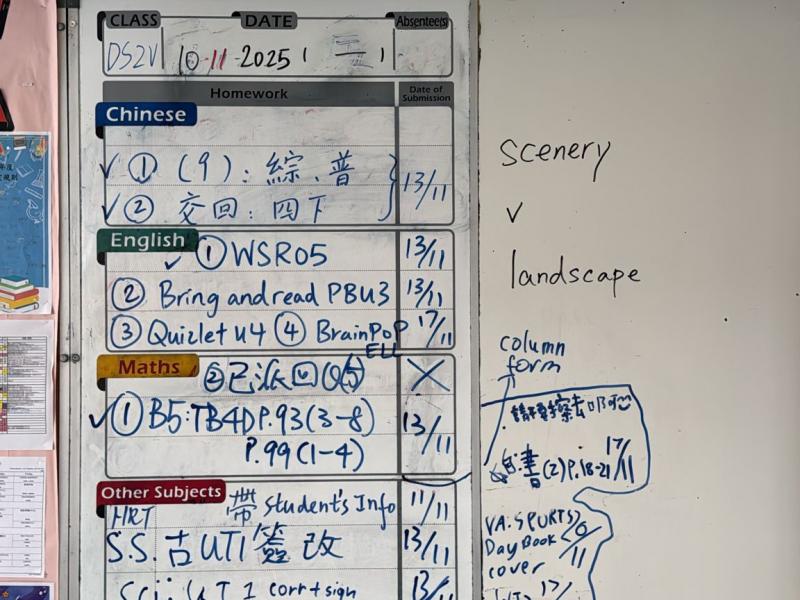 CLASS DATE Absentee(s)
DS2V 10-11-2025 ( 二 )
Homework Date of Submission
Chinese
✓ ① (9): 綜、普 } 13/11
✓ ② 交回: 四下
English
✓ ① WSR05 13/11
② Bring and read PBU3 13/11
③ Quizlet U4 ④ BrainPoP ELL 17/11
Maths ② 已派回 ✕
✓ ① B5: TB4D P.93(3-8) 13/11
P.99(1-4)
Other Subjects
HRT 帶 student's Info 11/11
S.S. UT1 簽 改 13/11
Sci: UT 1 corr+sign 13/
scenery
v
landscape
column
form
書(2)P.18-21 17/11
VA: SPORTS
Day Book
cover